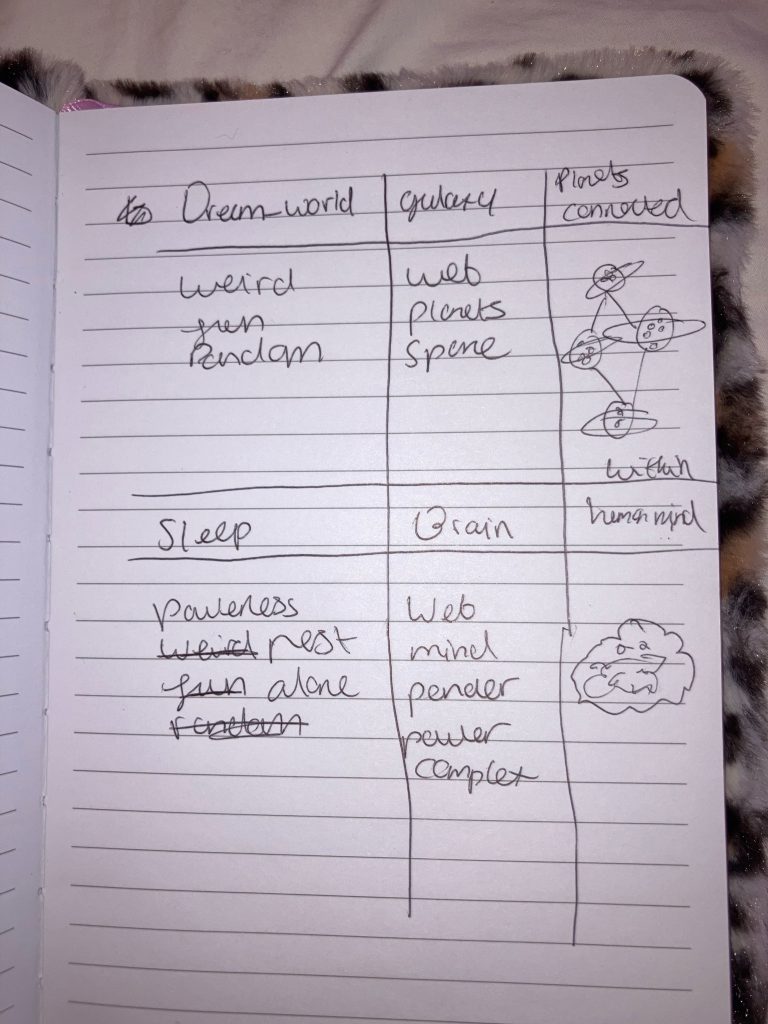 Dream world galaxy Planets
connected
weird web
fun planets
Random Space
within
Sleep Brain human mind
powerless Web
weird rest mind
fun alone ponder
random power
complex